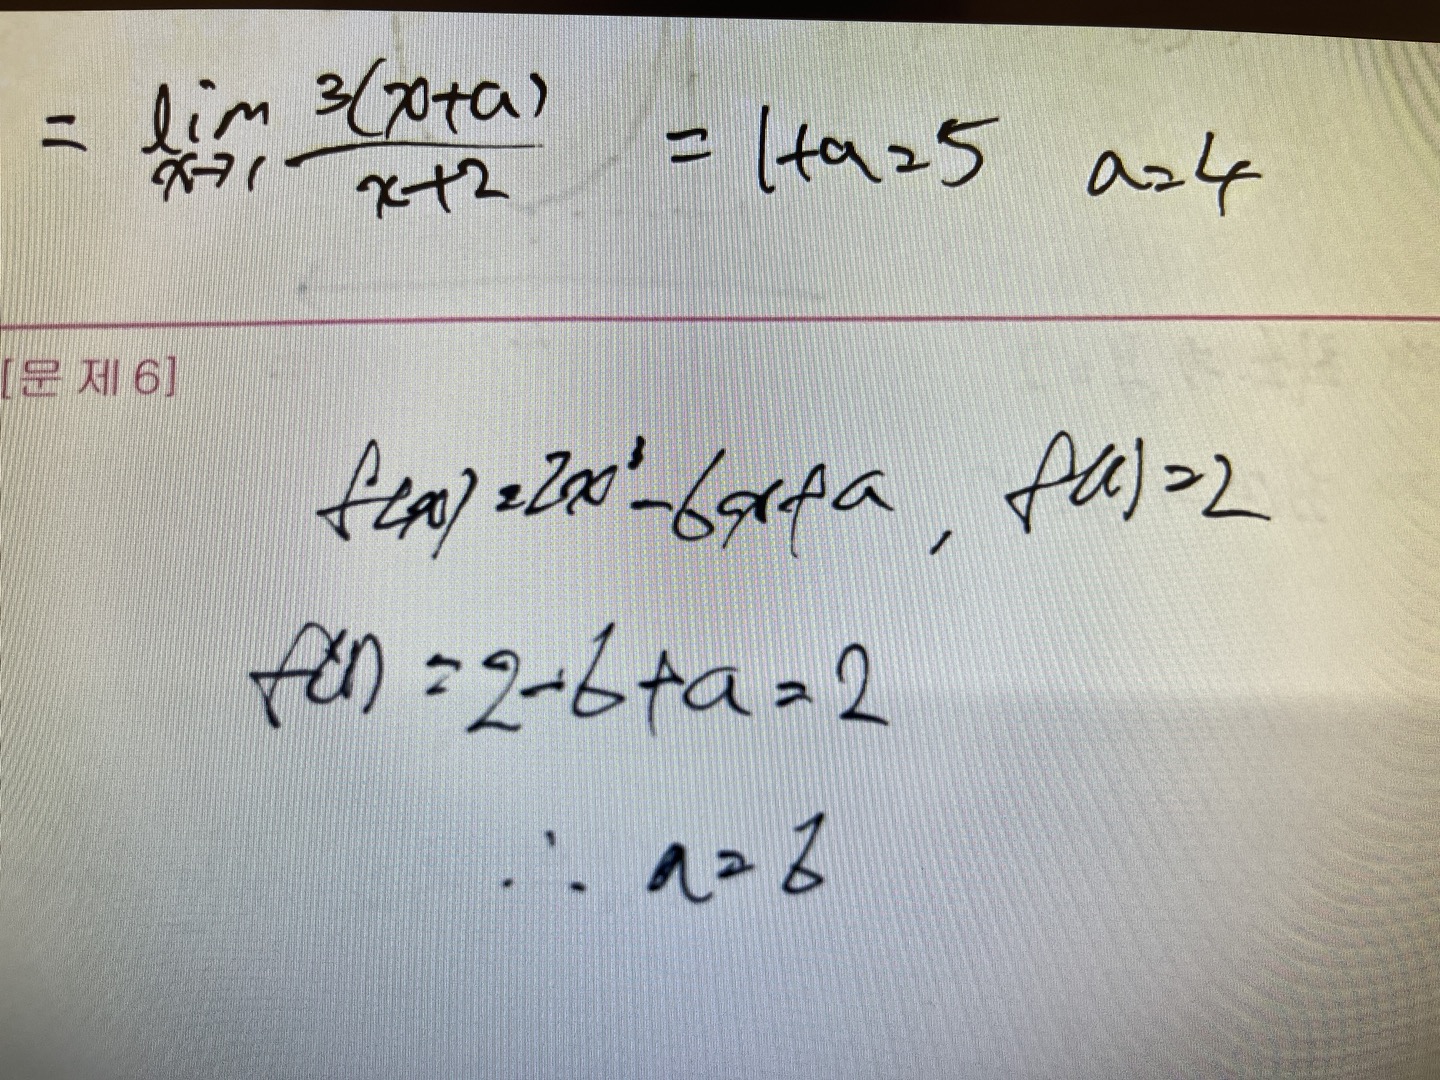 = lim x→1 3(x+a)/x+2 = 1+a=5 a=4
[문 제 6]
f(x)=2x³-6x+a, f(1)=2
f(1)=2-6+a=2
∴ a=6